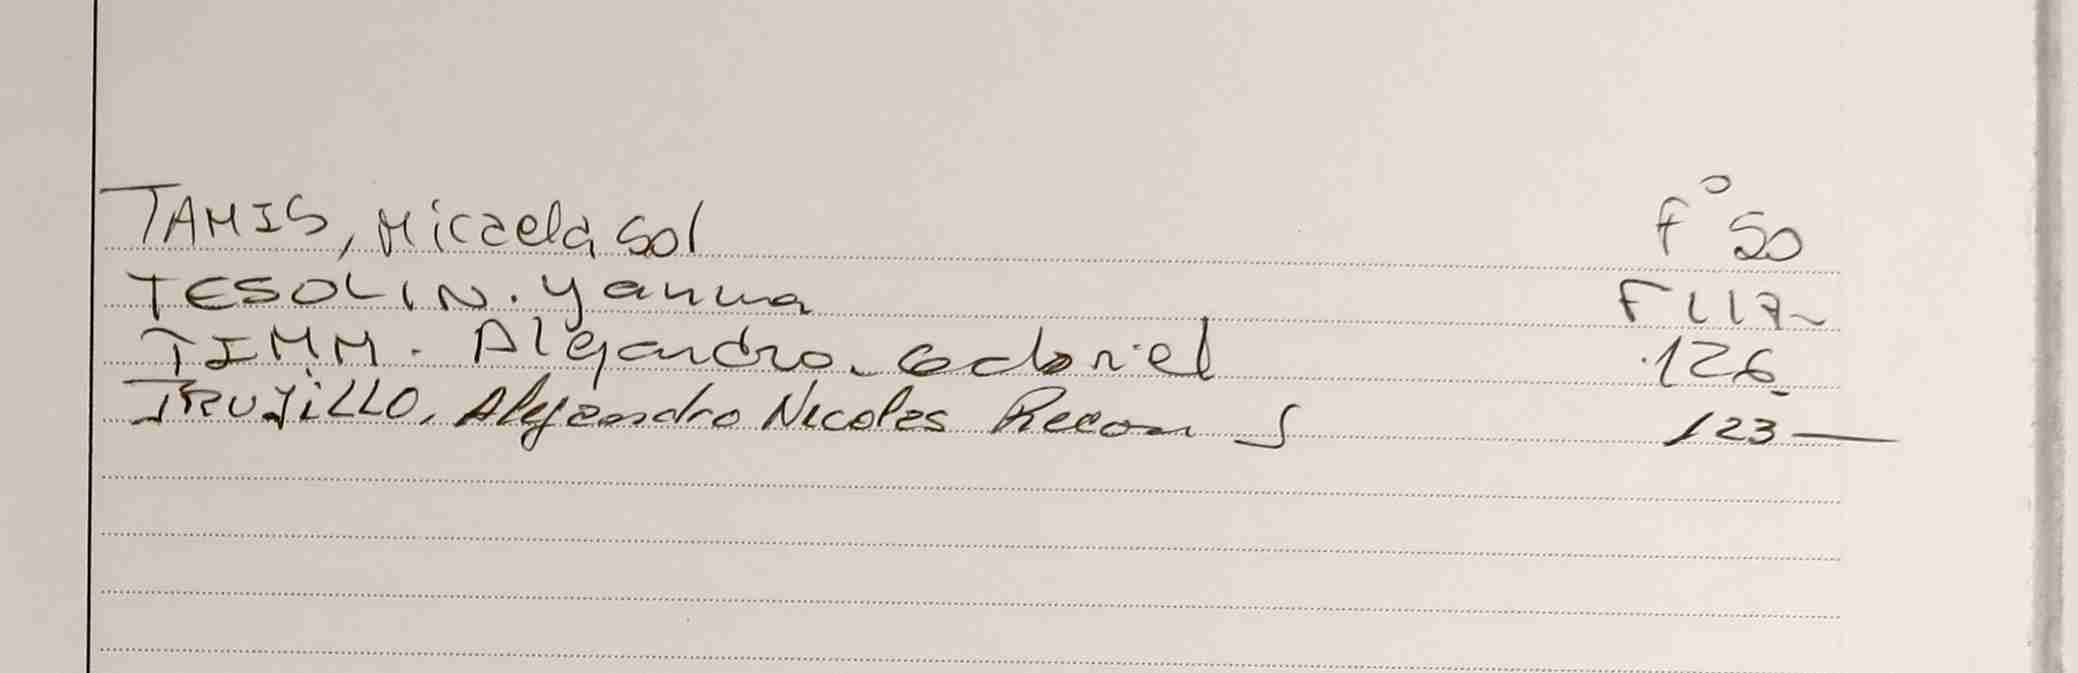 TAMIS, Micaela Sol F° 50
TESOLIN. Yanina F 117
TIMM. Alejandro Gabriel 126
TRUJILLO, Alejandro Nicolas Recon S 123